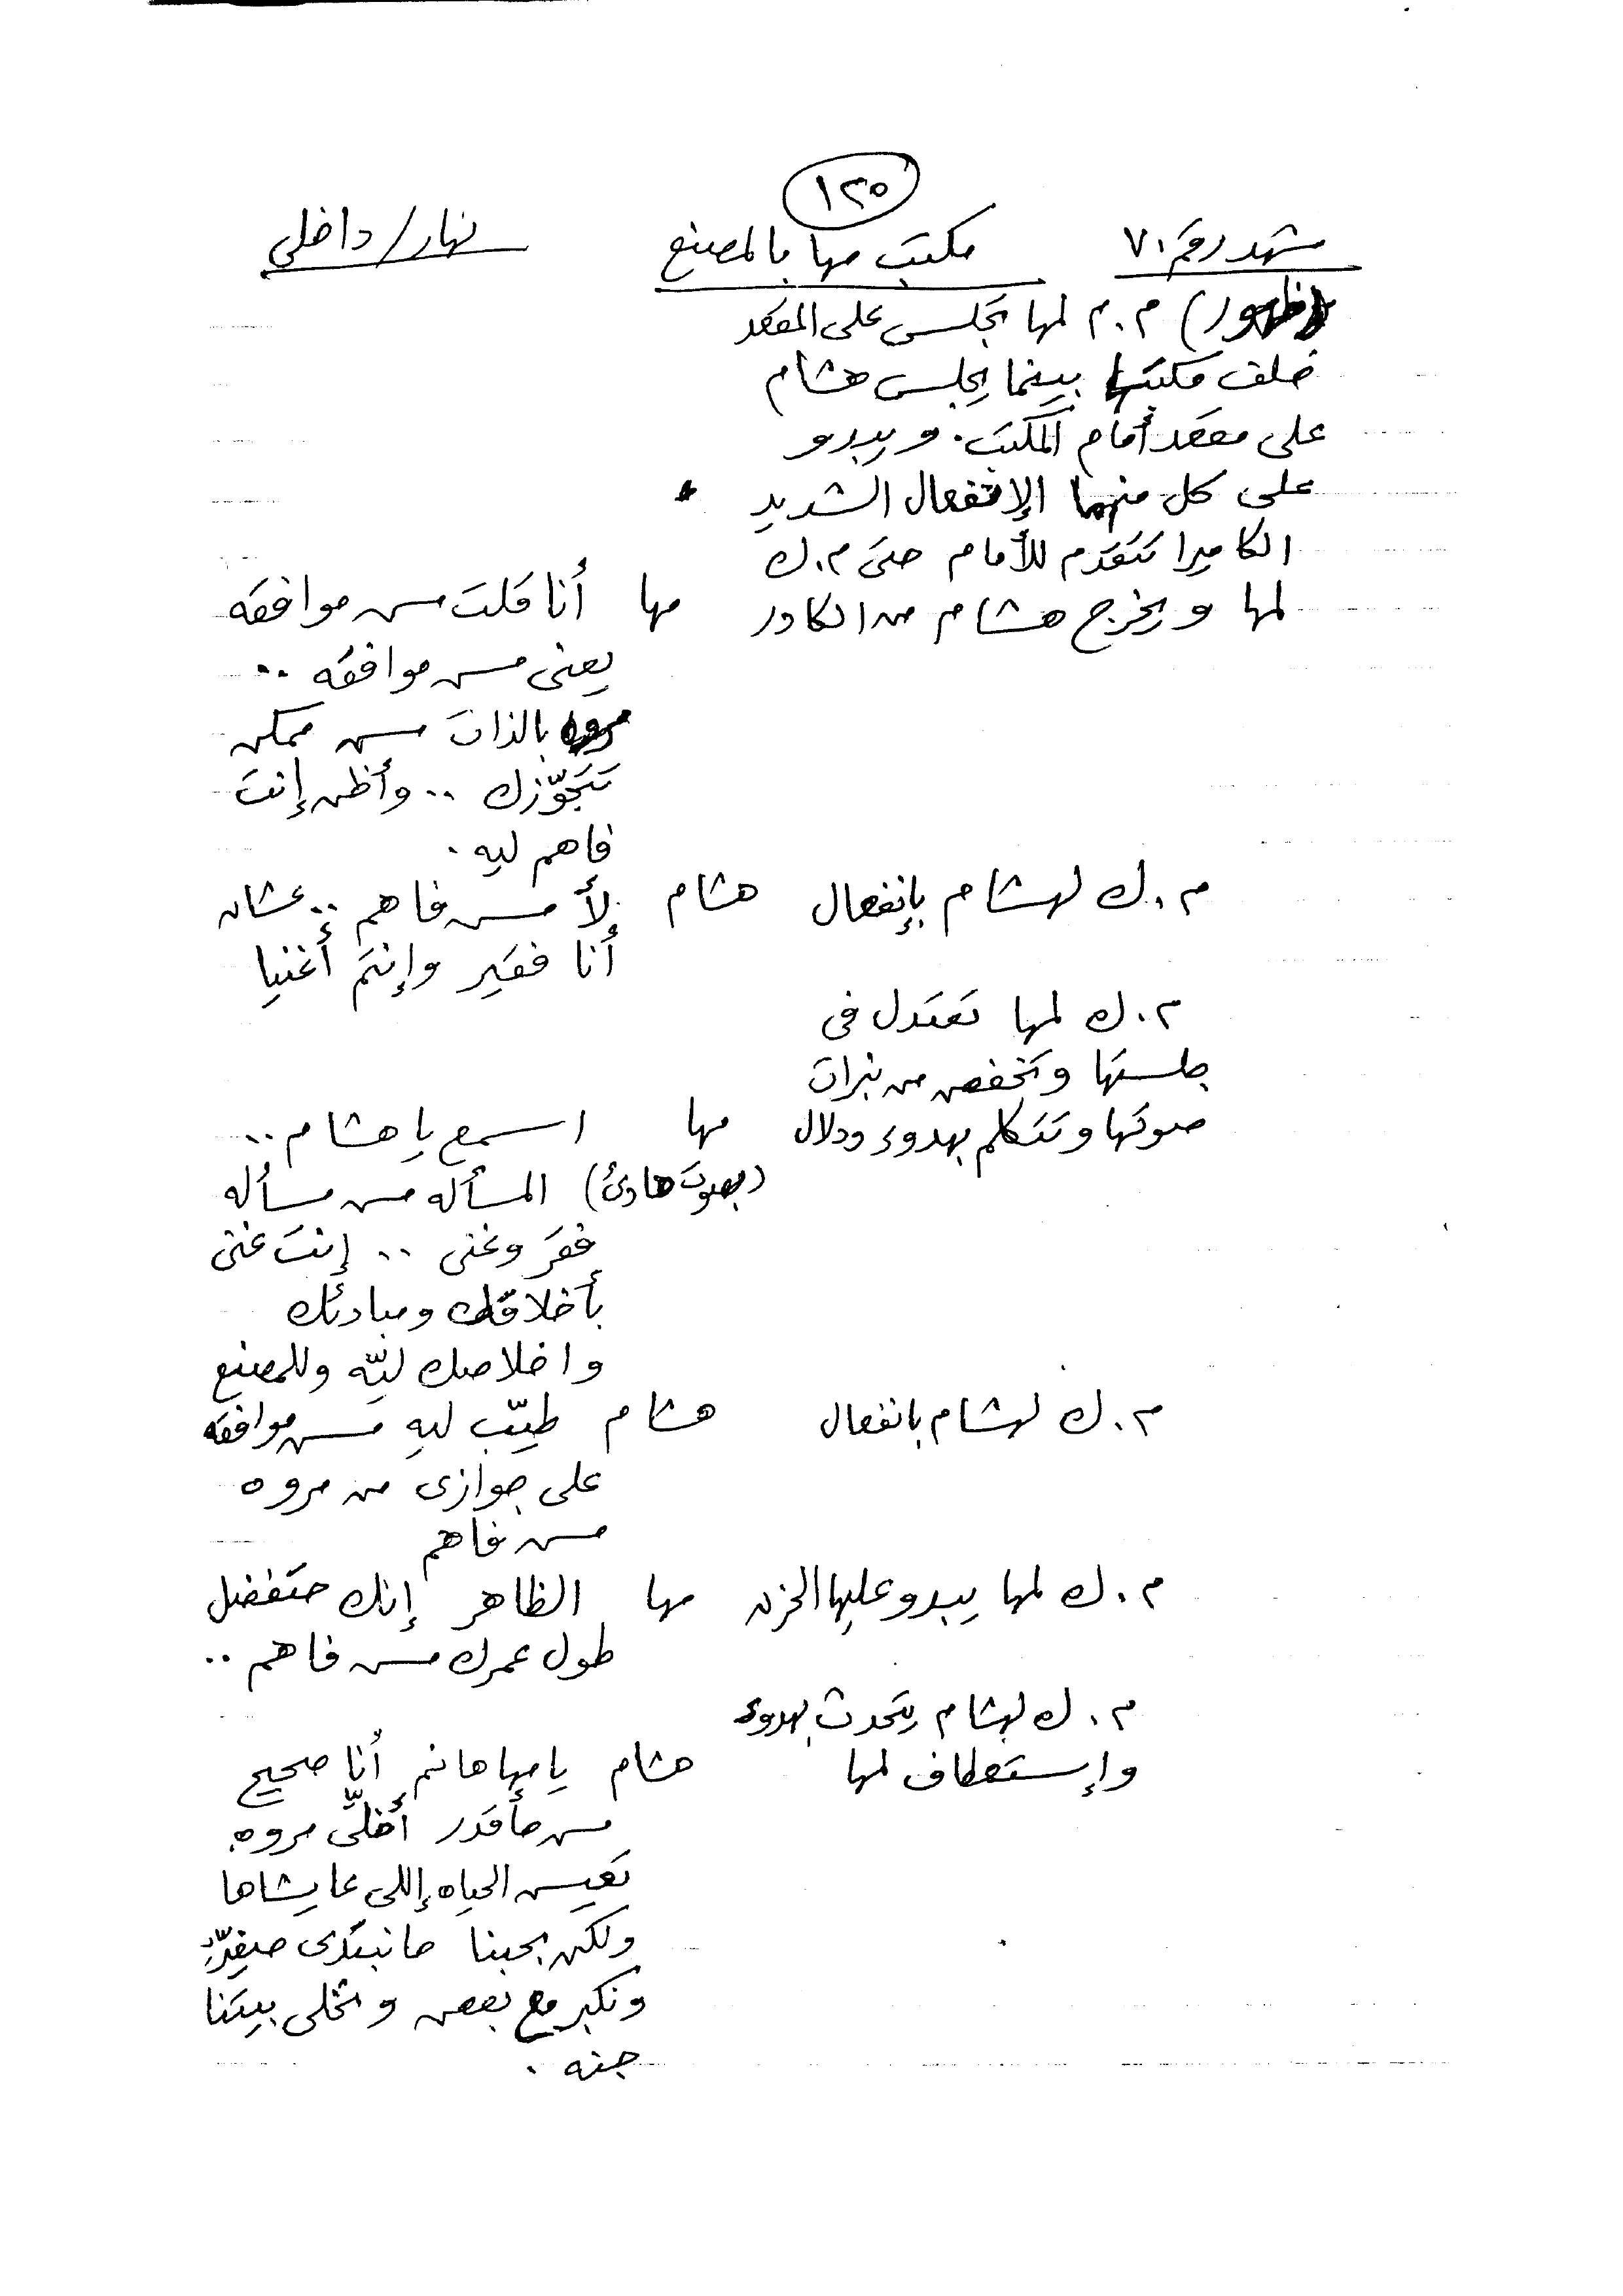 ١٢٥
مشهد رقم ٧٠ مكتب مها بالمصنع نهار/داخلي
(ظهور) م.م لمها تجلس على المقعد
خلف مكتبها بينما يجلس هشام
على مقعد أمام المكتب. ويبدو
على كل منهما الإنفعال الشديد .
الكاميرا تتقدم للأمام حتى م.ك
لمها ويخرج هشام من الكادر مها أنا قلت مش موافقه
يعنى مش موافقه ..
مروه بالذات مش ممكن
تتجوّزك .. وأظن إنت
فاهم ليه .
م.ك لهشام بإنفعال هشام لأ مش فاهم .. عشان
أنا فقير وإنتم أغنيا
م.ك لمها تعتدل فى
جلستها وتخفض من نبرات
صوتها وتتكلم بهدوء ودلال مها اسمع يا هشام ..
(بصوت هادئ) المسأله مش مسأله
فقر وغنى .. إنت غنى
بأخلاقك ومبادئك
واخلاصك ليّه وللمصنع
م.ك لهشام بانفعال هشام طيّب ليه مش موافقه
على جوازى من مروه
مش فاهم
م.ك لمها يبدو عليها الحزن مها الظاهر إنك حتفضل
طول عمرك مش فاهم ..
م.ك لهشام يتحدث بهدوء
وإستعطاف لمها هشام يا مها هانم أنا صحيح
مش حأقدر أخلّى مروه
تعيش الحياه إللى عايشاها
ولكن بحبنا حانبتدى صغيّرين
ونكبر مع بعض ونخلى بيتنا
جنه .